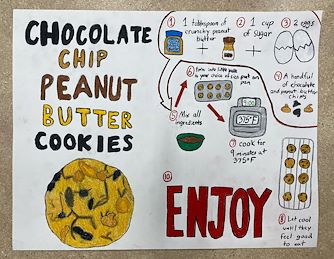 CHOCOLATE
CHIP
PEANUT
BUTTER
COOKIES
① 1 tablespoon of
crunchy peanut
butter
② 1 cup
of sugar
③ 2 eggs
④ A handful
of chocolate
and peanut butter
chips
⑤ Mix all
ingredients
⑥ Form into little balls
your choice of size put on
pan
375°F
⑦ cook for
9 minutes at
375°F
⑧ Let cool
until they
feel good
to eat
⑩
ENJOY